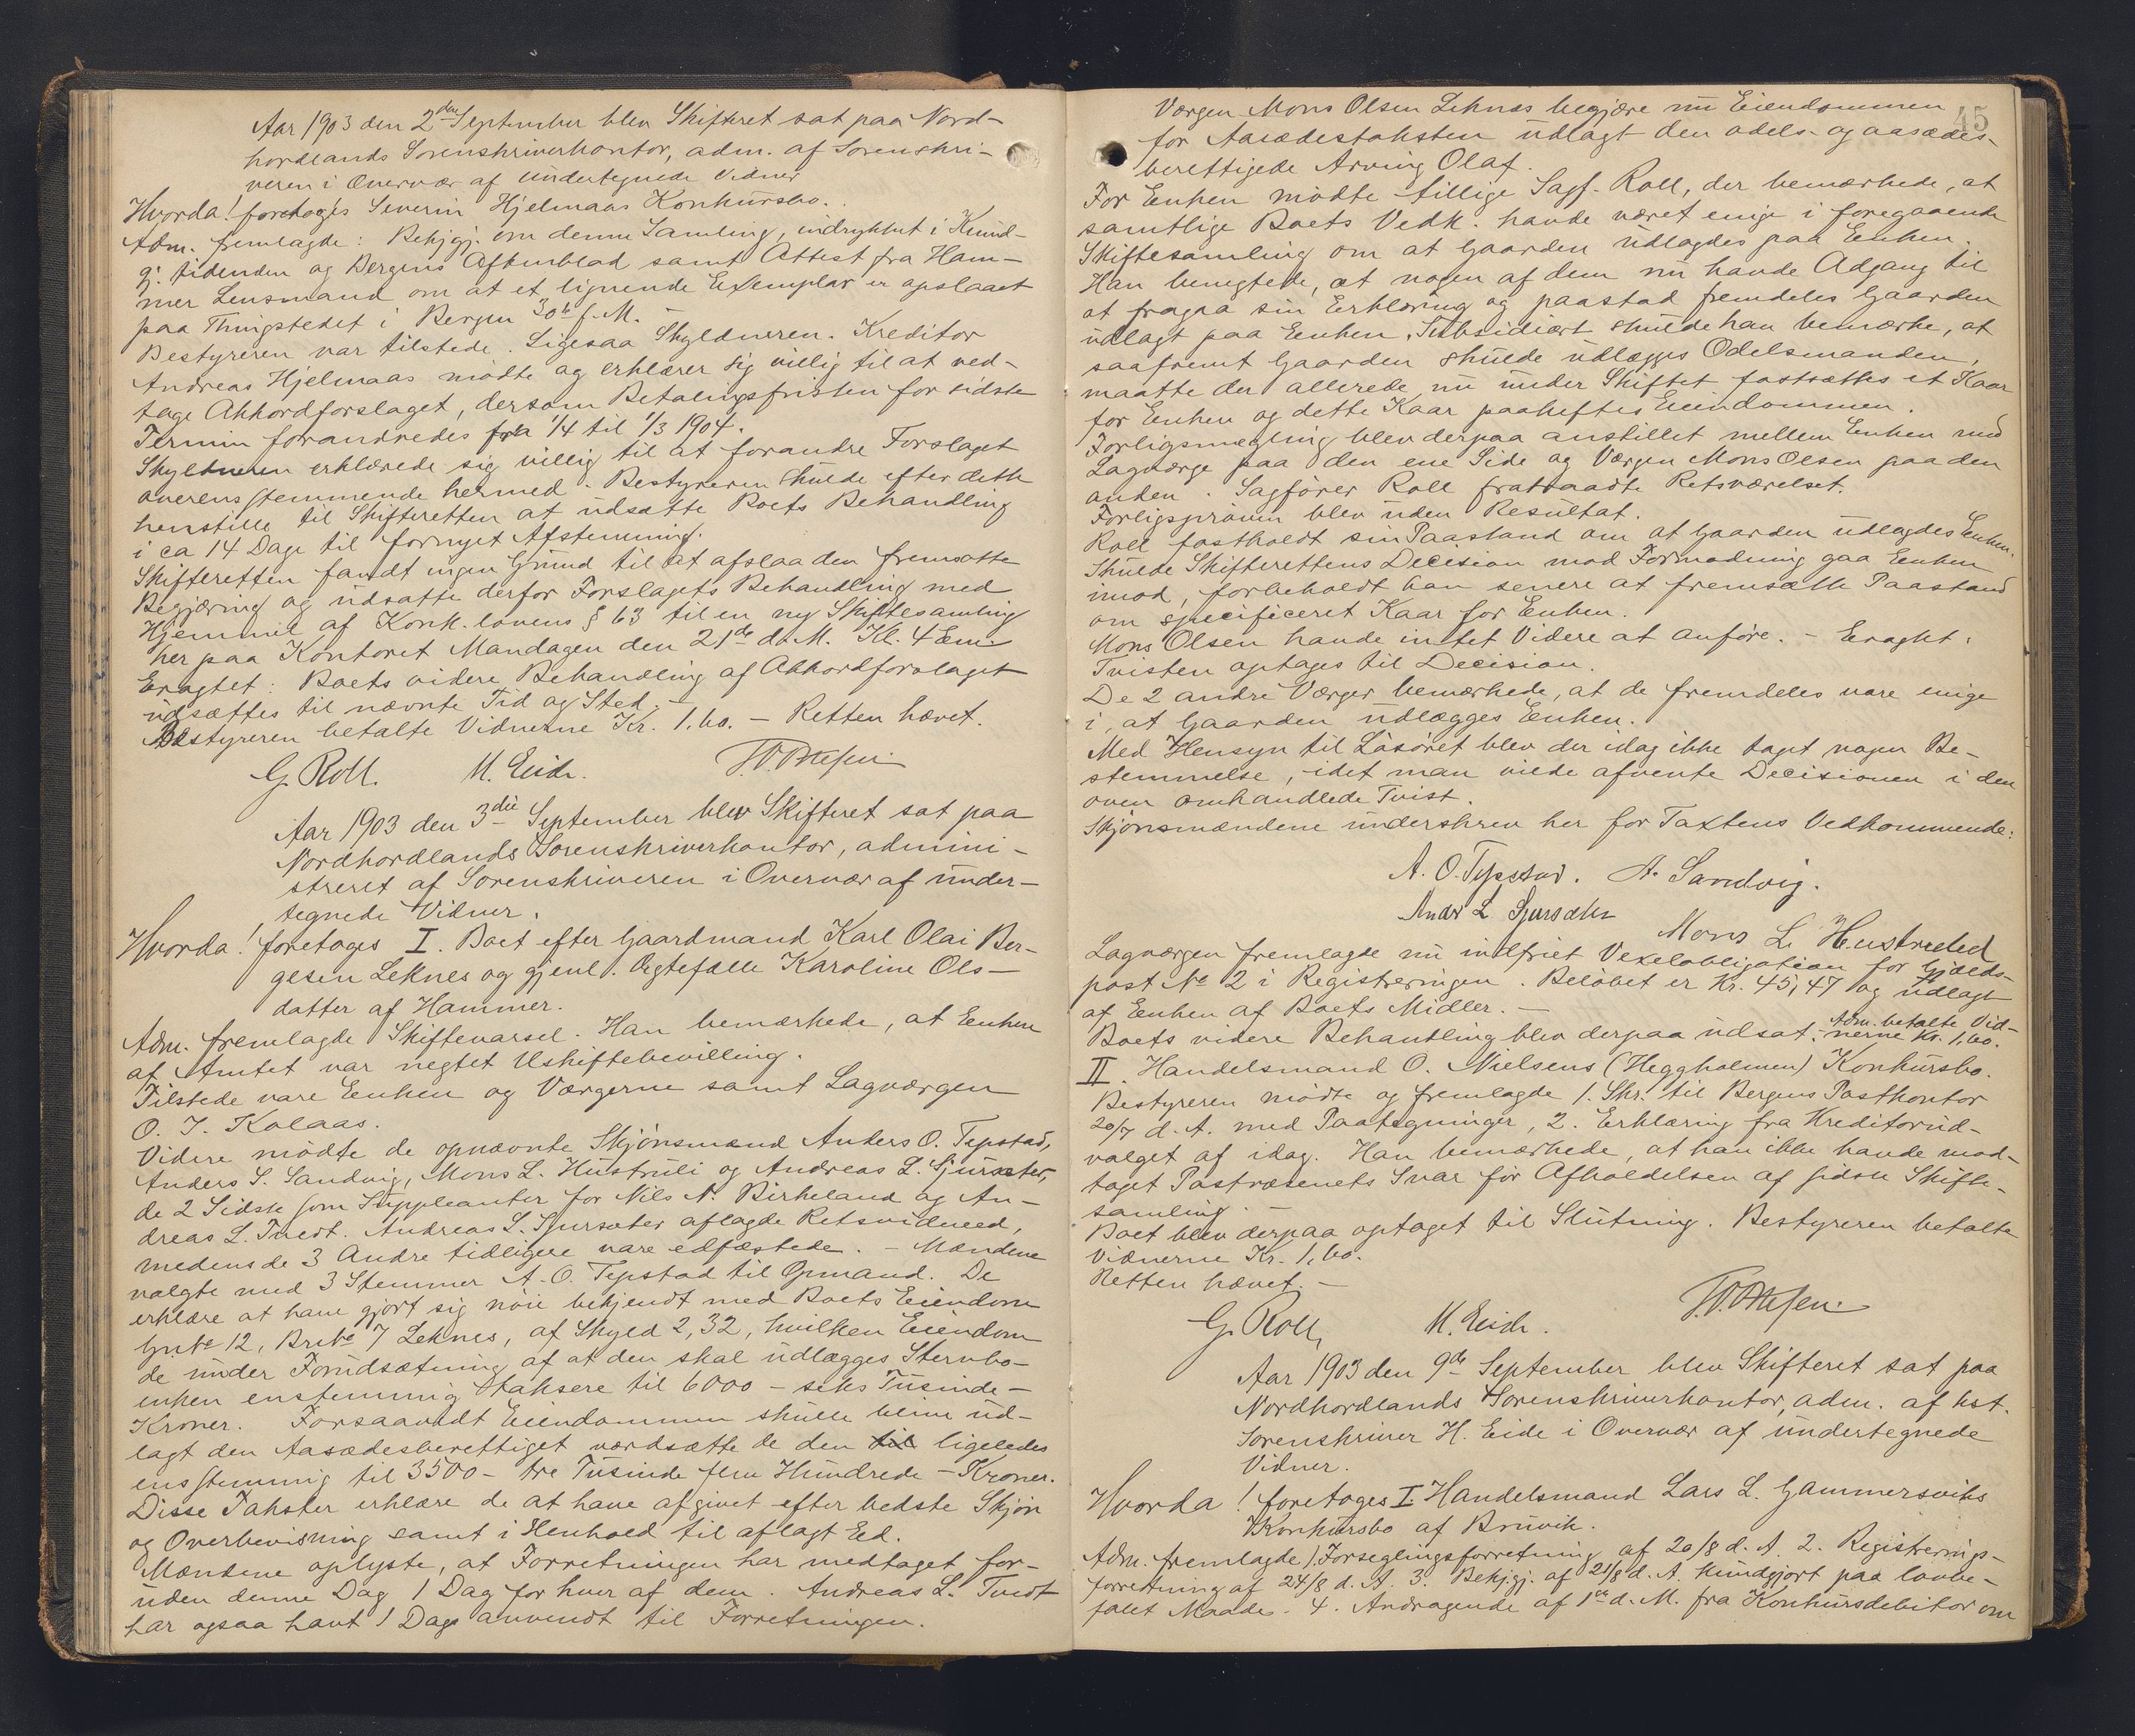 Aar 1903 den 2den September blev Skifteret sat paa Nord-
hordlands Sorenskriverkontor, adm. af Sorenskri-
veren i Overvær af undertegnede Vidner
Hvorda! foretoges Severin Hjelmaas Konkursbo.
Adm. fremlagde: Bekjgj. om denne Samling, indrykket i Kund-
gj. tidenden og Bergens Aftenblad samt Attest fra Ham-
mer Lensmand om at et lignende Exemplar er opslaaet
paa Thingstedet i Bergen 30te f. M.
Bestyreren var tilstede. Ligesaa Skyldneren. Kreditor
Andreas Hjelmaas mødte og erklærer sig villig til at ved-
tage Akkordforslaget, dersom Betalingsfristen for sidste
Termin forandredes fra 1/4 til 1/3 1904.
Skyldneren erklærede sig villig til at forandre Forslaget
overensstemmende hermed. Bestyreren skulde efter dette
henstille til Skifteretten at udsætte Boets Behandling
i ca 14 Dage til fornyet Afstemning.
Skifteretten fandt ingen Grund til at afslaa den fremsatte
Begjæring og udsatte derfor Forslagets Behandling med
Hjemmel af Konk.lovens § 63 til en ny Skiftesamling
her paa Kontoret Mandagen den 21de d. M. Kl. 4 Em.
Eragtet: Boets videre Behandling af Akkordforslaget
udsættes til nævnte Tid og Sted. -
Bestyreren betalte Vidnerne Kr. 1.60. - Retten hævet.
G. Roll. H. Eide.
Aar 1903 den 3die September blev Skifteret sat paa
Nordhordlands Sorenskriverkontor, admini-
streret af Sorenskriveren i Overvær af under-
tegnede Vidner.
Hvorda! foretoges I. Boet efter Gaardmand Karl Olai Ber-
gesen Leknes og gjenl. Ægtefælle Karoline Ols-
datter af Hammer.
Adm. fremlagde Skiftevarsel. Han bemærkede, at Enken
af Amtet var negtet Uskiftebevilling.
Tilstede vare Enken og Værgerne samt Lagværgen
O. J. Kolaas.
Videre mødte de opnævnte Skjønsmænd Anders O. Tepstad,
Anders S. Sandvig, Mons L. Hustruli og Andreas L. Sjursæter,
de 2 Sidste som Suppleanter for Nils N. Birkeland og An-
dreas L. Tvedt. Andreas L. Sjursæter aflagde Retsvidneed,
medens de 3 Andre tidligere vare edfæstede. - Mændene
valgte med 3 Stemmer A. O. Tepstad til Opmand. De
erklære at have gjort sig nøie bekjendt med Boets Eiendom
Gn No 12, Br No 7 Leknes, af Skyld 2,32, hvilken Eiendom
de under Forudsætning af at den skal udlægges Stervbo-
enken enstemmig taksere til 6000 - seks Tusinde -
Kroner. Forsaavidt Eiendommen skulle blive ud-
lagt den Aasædesberettiget værdsætte de den til ligeledes
ensstemmig til 3500 - tre Tusinde fem Hundrede - Kroner.
Disse Takster erklære de at have afgivet efter bedste Skjøn
og Overbevisning samt i Henhold til aflagt Ed.
Mændene oplyste, at Forretningen har medtaget for-
uden denne Dag 1 Dag for hver af dem. Andreas L. Tvedt
har ogsaa havt 1 Dag anvendt til Forretningen.
45
Værgen Mons Olsen Leknes begjære nu Eiendommen
for Aasædestaksten udlagt den odels- og aasædes-
berettigede Arving Olaf.
For Enken mødte tillige Sagf. Roll, der bemærkede, at
samtlige Boets Vedk. havde været enige i foregaaende
Skiftesamling om at Gaarden udlagdes paa Enken.
Han benegtede, at nogen af dem nu havde Adgang til
at fragaa sin Erklæring og paastod fremdeles Gaarden
udlagt paa Enken. Subsidiært skulde han bemærke, at
saafremt Gaarden skulde udlægges Odelsmanden,
maatte der allerede nu under Skiftet fastsættes et Kaar
for Enken og dette Kaar paaheftes Eiendommen.
Forligsmægling blev derpaa anstillet mellem Enken med
Lagværge paa den ene Side og Værgen Mons Olsen paa den
anden. Sagfører Roll fratraadte Retsværelset.
Forligsprøven blev uden Resultat.
Roll fastholdt sin Paastand om at Gaarden udlagdes Enken.
Skulde Skifterettens Decision mod Formodning gaa Enken
imod, forbeholdt han senere at fremsætte Paastand
om specificeret Kaar for Enken.
Mons Olsen havde intet Videre at anføre. - Eragtet:
Tvisten optages til Decision.
De 2 andre Værger bemærkede, at de fremdeles vare enige
i, at Gaarden udlægges Enken.
Med Hensyn til Løsøret blev der idag ikke taget nogen Be-
stemmelse, idet man vilde afvente Decisionen i den
oven omhandlede Tvist.
Skjønsmændene underskrev her for Taxtens Vedkommende:
A. O. Tepstad. A. Sandvig.
Andr L Sjursæter Mons L. Hustruled
Lagværgen fremlagde nu indfriet Vexelobligation for Gjælds-
post No 2 i Registreringen. Beløbet er Kr. 45,47 og udlagt
af Enken af Boets Midler. -
Boets videre Behandling blev derpaa udsat. - Adm. betalte Vid-
nerne Kr. 1,60.
II. Handelsmand O. Nielsens (Heggholmen) Konkursbo.
Bestyreren mødte og fremlagde 1. Skr. til Bergens Postkontor
20/7 d. A. med Paategninger, 2. Erklæring fra Kreditorud-
valget af idag. Han bemærkede, at han ikke havde mod-
taget Postvæsenets Svar før Afholdelsen af sidste Skifte-
samling. -
Boet blev derpaa optaget til Slutning. Bestyreren betalte
Vidnerne Kr. 1,60.
Retten hævet. -
G. Roll, H. Eide.
Aar 1903 den 9de September blev Skifteret sat paa
Nordhordlands Sorenskriverkontor, adm. af kst.
Sorenskriver H. Eide i Overvær af undertegnede
Vidner.
Hvorda! foretoges I. Handelsmand Lars L. Gammersviks
Konkursbo af Bruvik.
Adm. fremlagde 1. Forseglingsforretning af 20/8 d. A. 2. Registrerings-
forretning af 24/8 d. A. 3. Bekjgj. af 21/8 d. A. kundgjort paa lovbe-
falet Maade. 4. Andragende af 1ste d. M. fra Konkursdebitor om